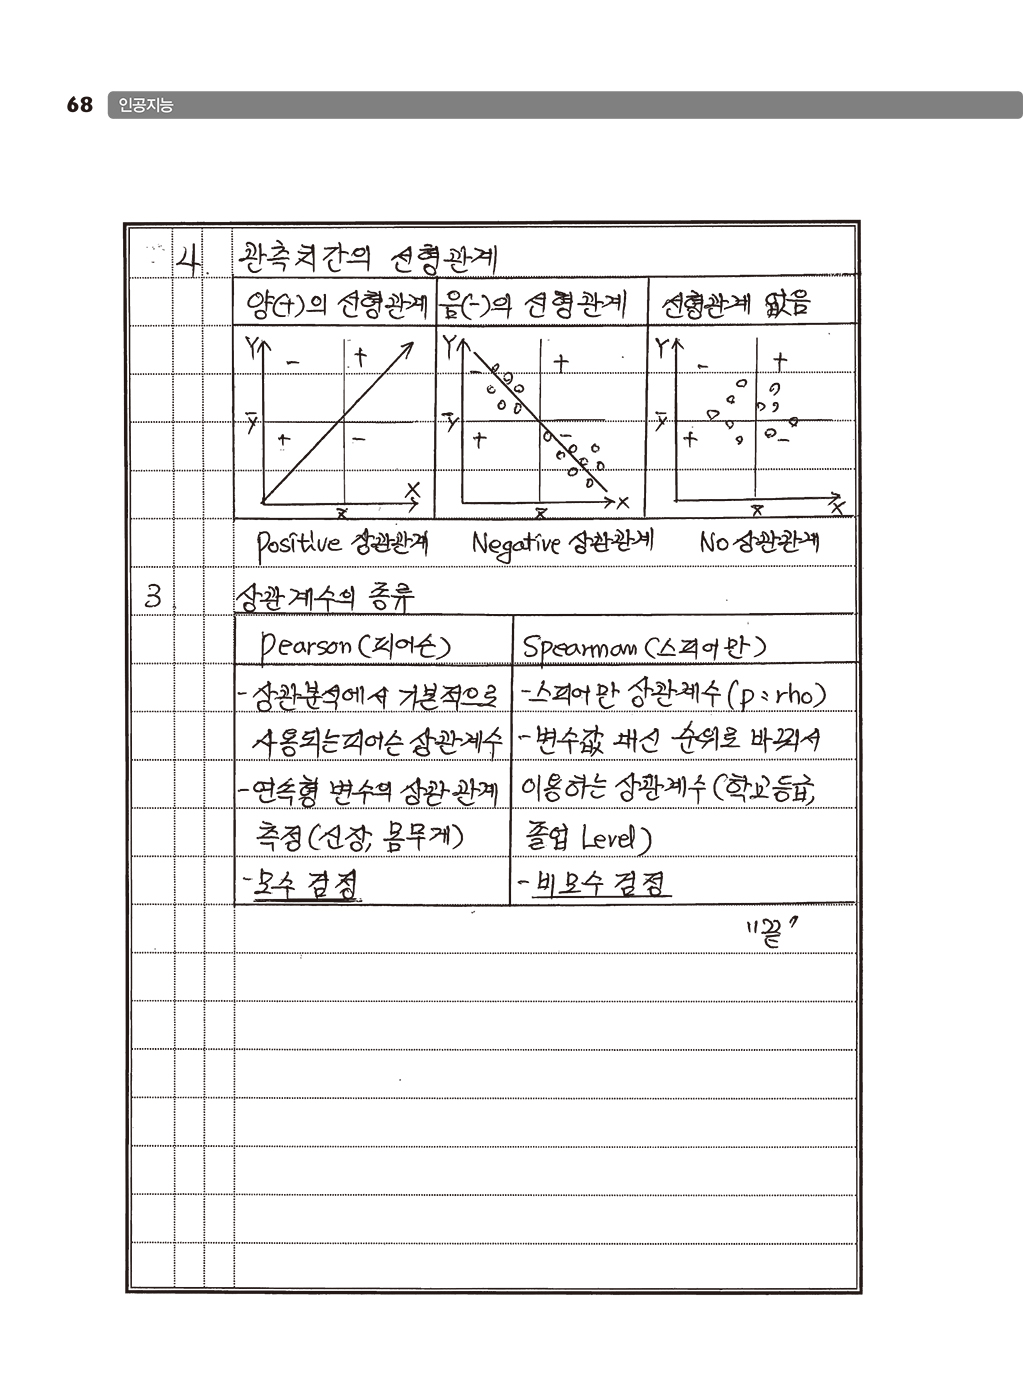 68 인공지능
4. 관측치간의 선형관계
양(+)의 선형관계 음(-)의 선형관계 선형관계 없음
Y - + Y - + Y - +
ȳ + - ȳ + - ȳ + -
X X X
x̄ x̄ x̄
Positive 상관관계 Negative 상관관계 No 상관관계
3. 상관계수의 종류
Pearson(피어슨) Spearman(스피어만)
-상관분석에서 기본적으로 -스피어만 상관계수(p:rho)
사용되는피어슨 상관계수 -변수값 대신 순위로 바꿔서
-연속형 변수의 상관관계 이용하는 상관계수(학교등급,
측정(신장, 몸무게) 졸업 Level)
-모수 검정 -비모수 검정
"끝"